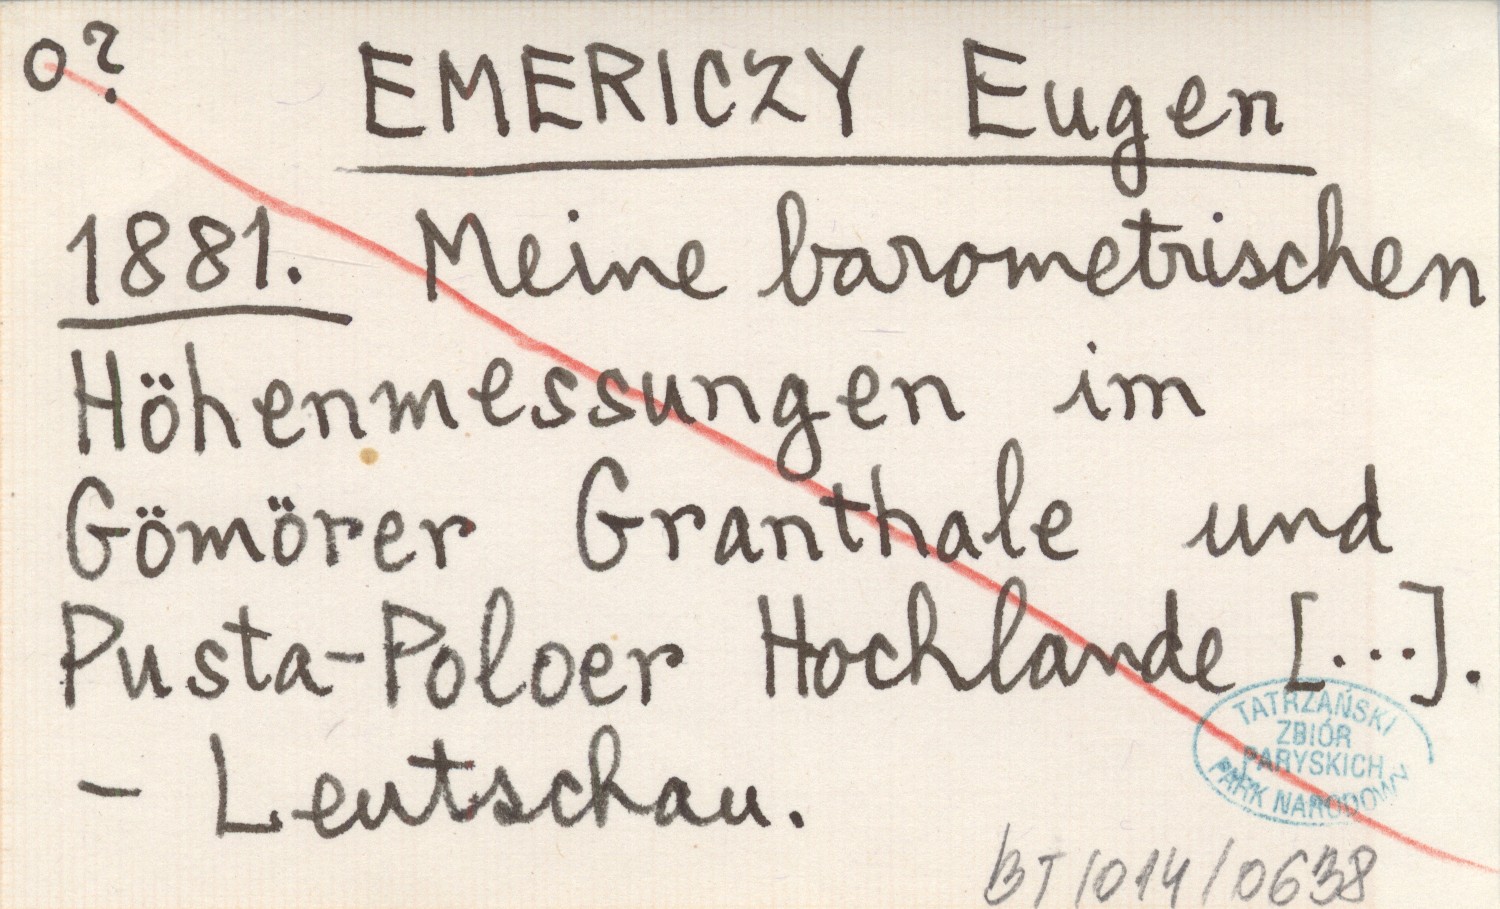 o?
EMERICZY Eugen
1881. Meine barometrischen
Höhenmessungen im
Gömörer Granthale und
Pusta-Poloer Hochlande [...].
- Leutschau.
TATRZAŃSKI
ZBIÓR
PARYSKICH
PARK NARODOWY
BT/014/0638